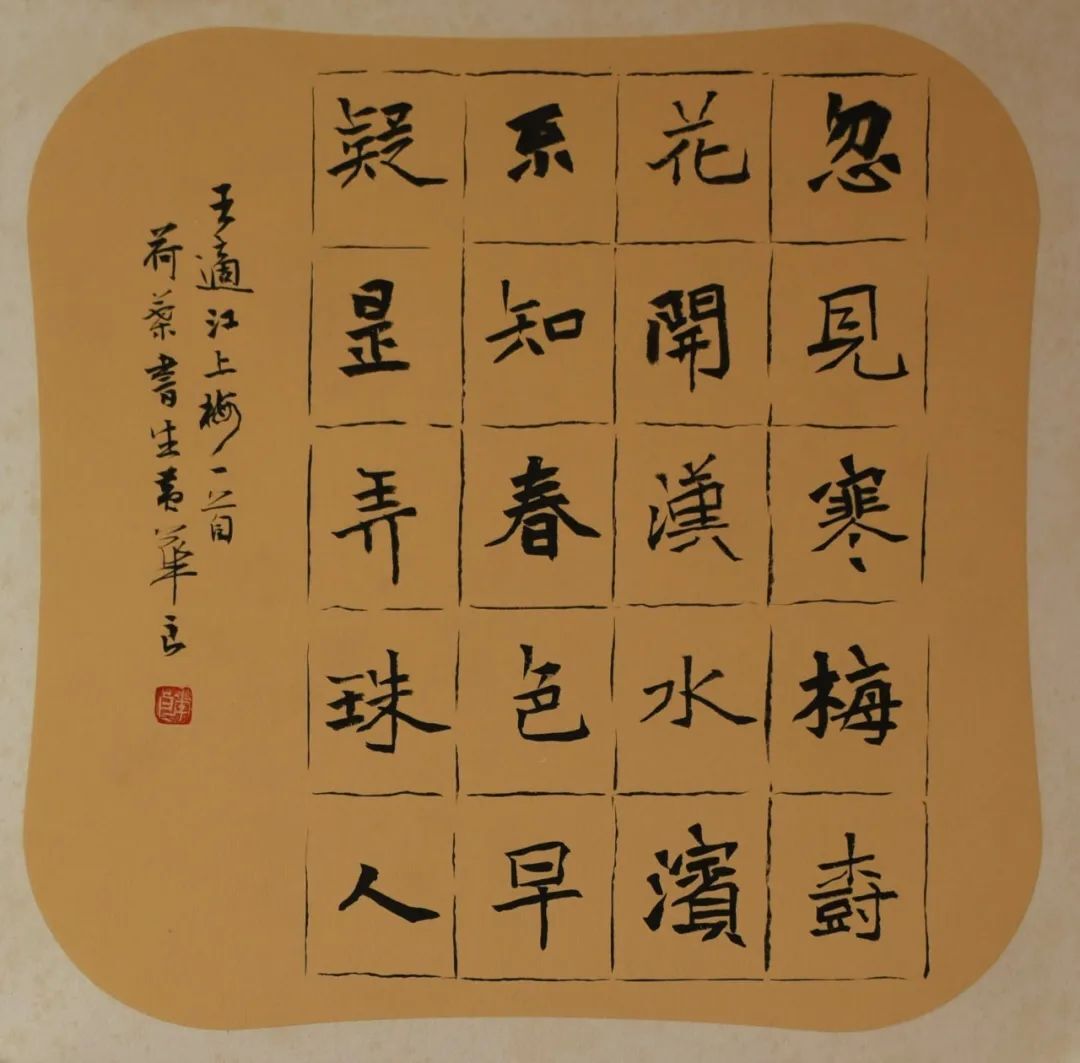 忽見寒梅樹
花開漢水濱
不知春色早
疑是弄珠人
王適江上梅一首
荷葉書生黃華良